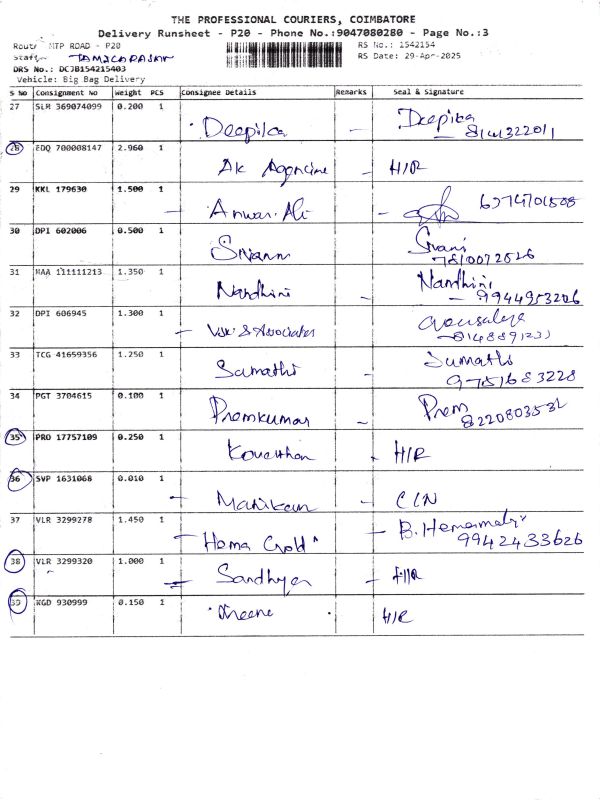 THE PROFESSIONAL COURIERS, COIMBATORE
Delivery Runsheet - P20 - Phone No.:9047080280 - Page No.:3
Route MTP ROAD - P20 RS No.: 1542154
Staff: RS Date: 29-Apr-2025
DRS No.: DCJB154215403
Vehicle: Big Bag Delivery
S No Consignment No Weight PCS Consignee Details Remarks Seal & Signature
27 SLM 369074099 0.200 1 Deepika - Deepika
28 EDQ 700008147 2.960 1 Ak - H/R
29 KKL 179630 1.500 1 - Anwar Ali -
30 DPI 602006 0.500 1
7810072826
31 MAA 111111213 1.350 1 Nandhini Nandhini
- 9944953206
32 DPI 606945 1.300 1 - & Associates
33 TCG 41659356 1.250 1 Sumathi - Sumathi
9751683228
34 PGT 3704615 0.100 1 Premkumar - Prem
35 PRO 17757109 0.250 1 H/R
36 SVP 1631068 0.010 1 - Manikam - C/N
37 VLR 3299278 1.450 1 - Hema Gold -
9942433626
38 VLR 3299320 1.000 1 Sandhya - H/R
39 KGD 930999 0.150 1 H/R